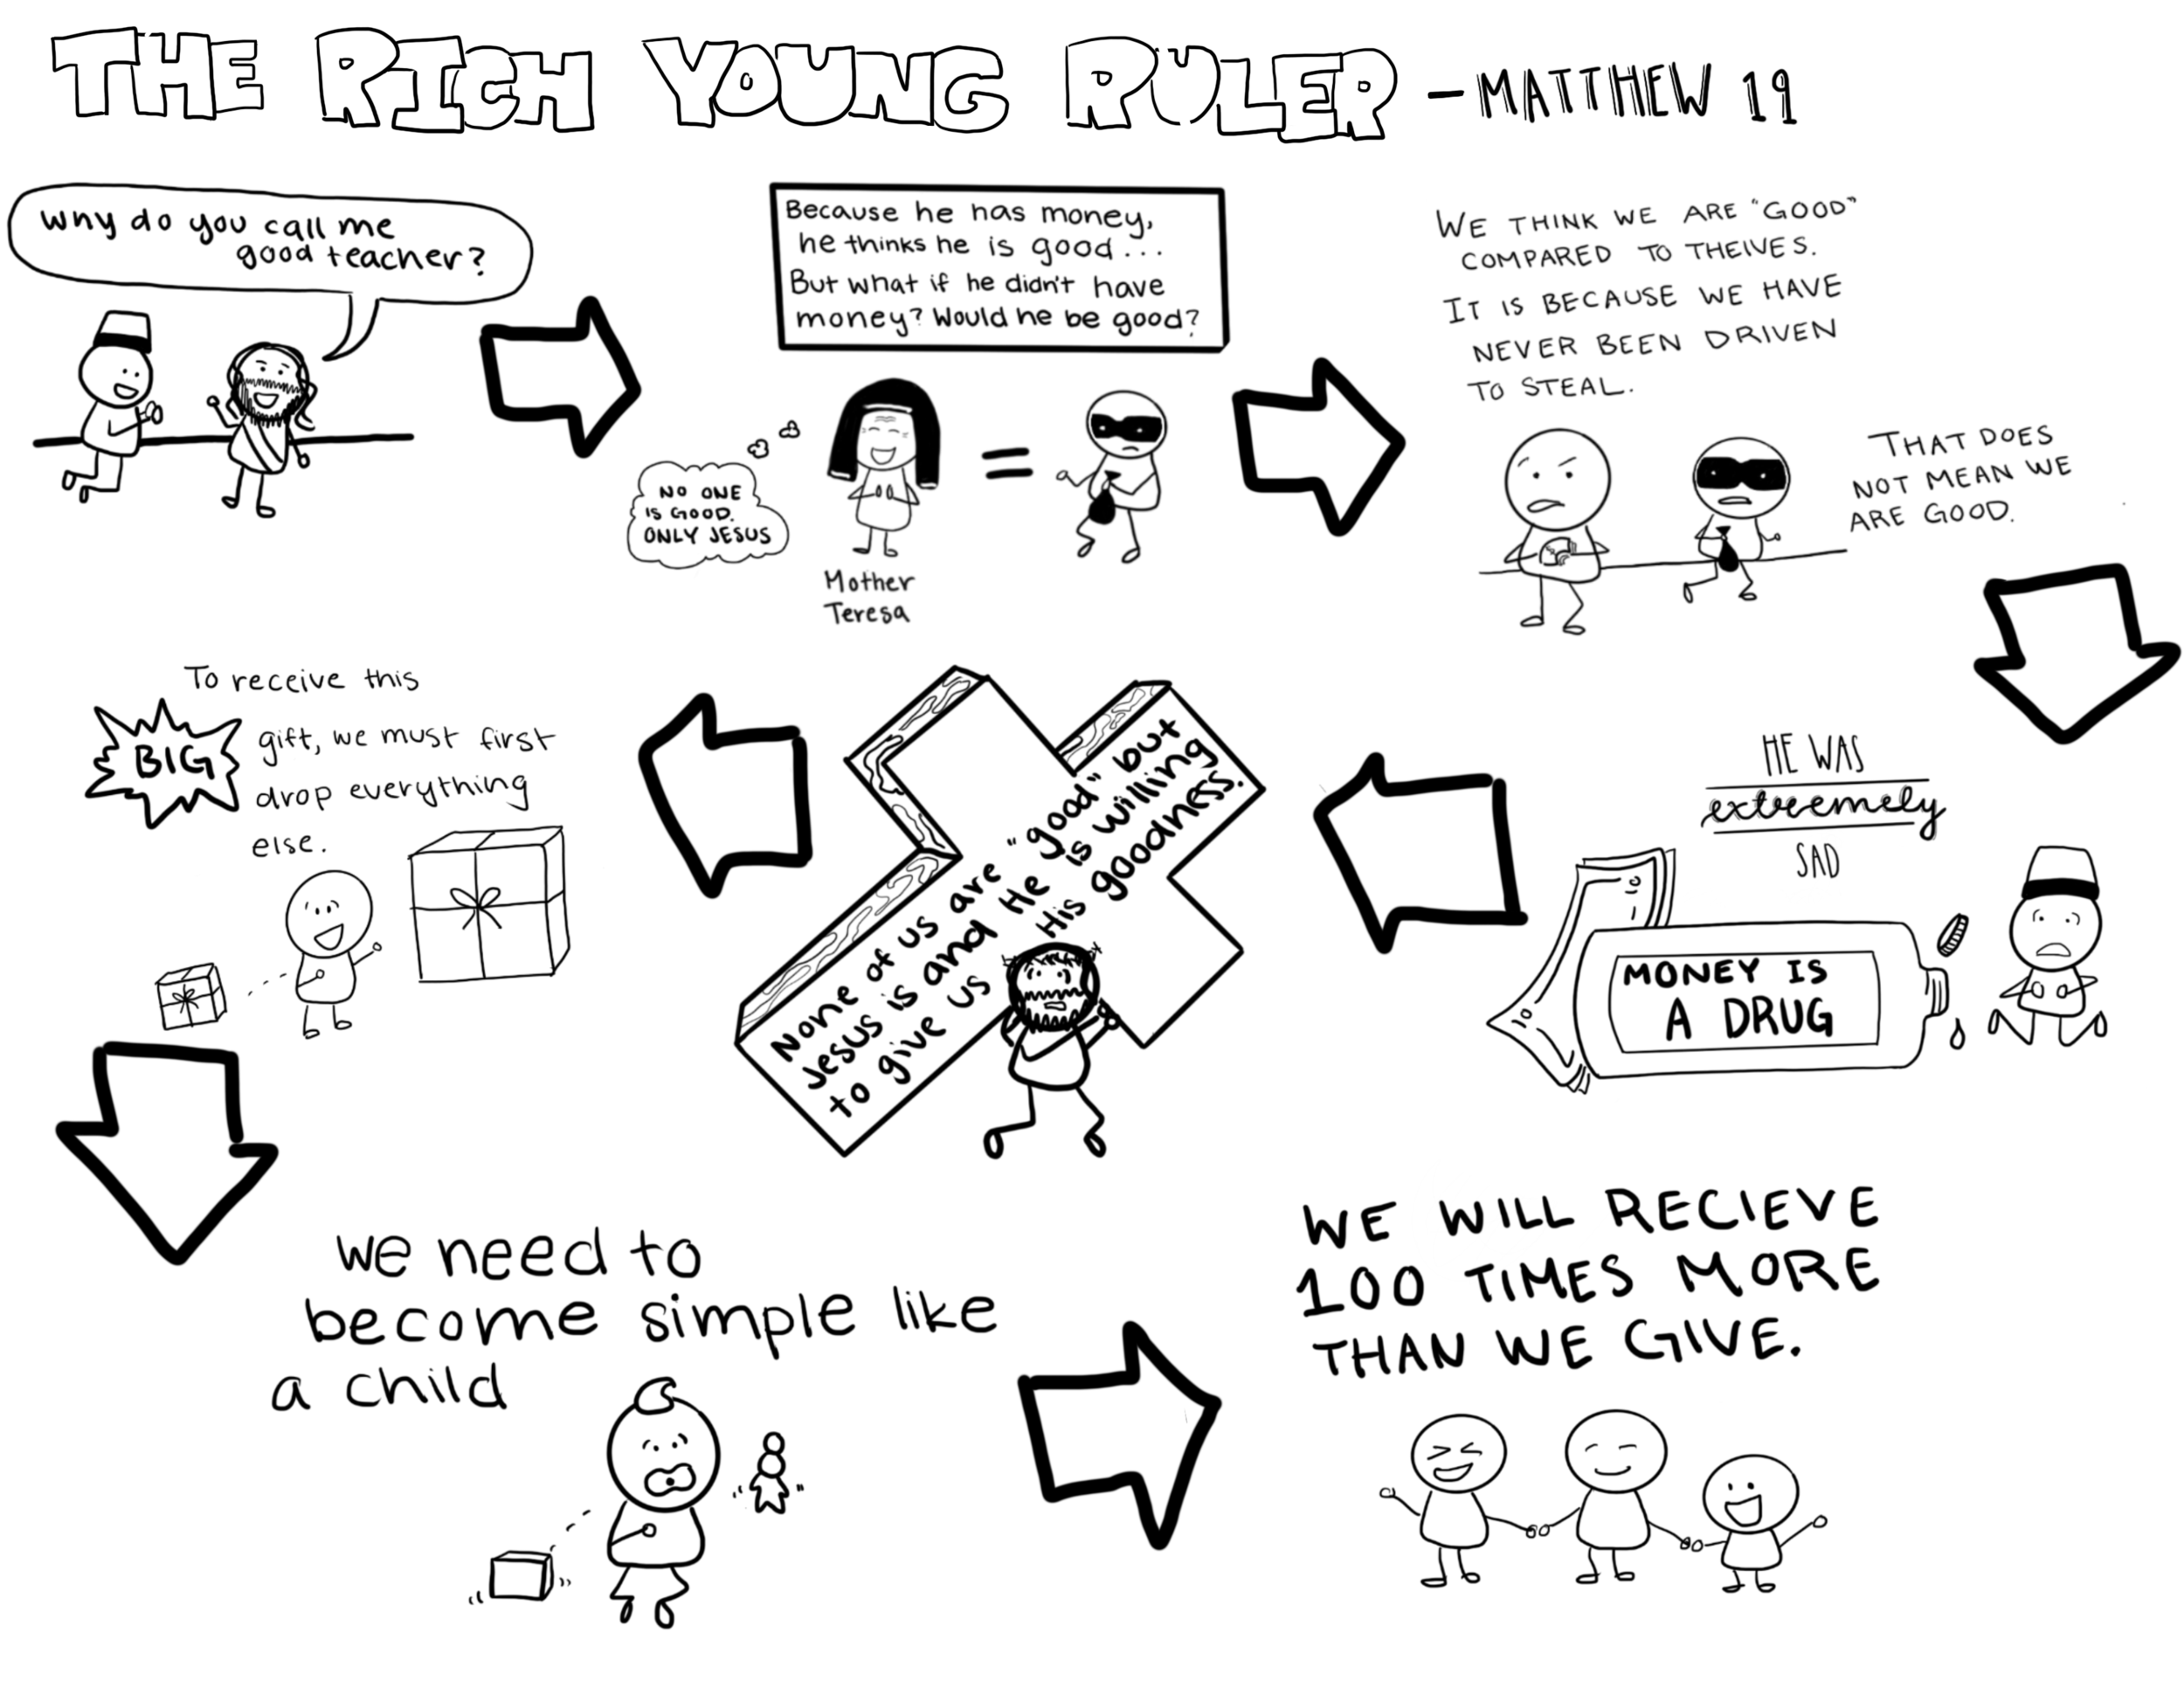 THE RICH YOUNG RULER - MATTHEW 19
why do you call me
good teacher?
Because he has money,
he thinks he is good...
But what if he didn't have
money? Would he be good?
NO ONE
IS GOOD.
ONLY JESUS
Mother
Teresa
WE THINK WE ARE "GOOD"
COMPARED TO THEIVES.
IT IS BECAUSE WE HAVE
NEVER BEEN DRIVEN
TO STEAL.
THAT DOES
NOT MEAN WE
ARE GOOD.
HE WAS
extremely
SAD
MONEY IS
A DRUG
None of us are "good" but
Jesus is and He is willing
to give us His goodness.
To receive this
BIG gift, we must first
drop everything
else.
we need to
become simple like
a child
WE WILL RECIEVE
100 TIMES MORE
THAN WE GIVE.